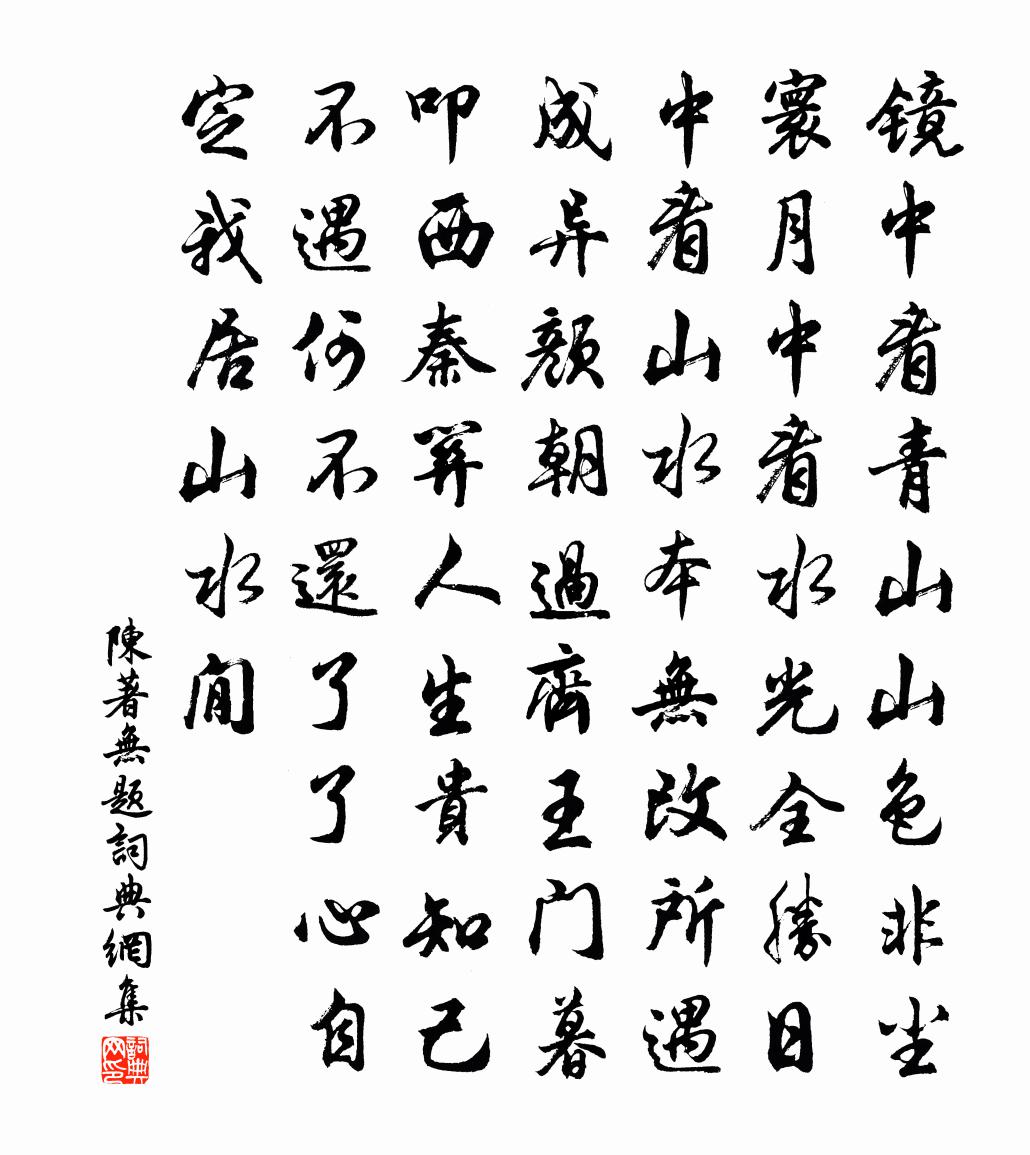 镜中看青山山色非尘
寰月中看水光全勝日
中看山水本無改所遇
成异颜朝過齊王门暮
叩西秦関人生貴知己
不遇何不還了了心自
定我居山水间
陳著無题詞典網集
詞典网印